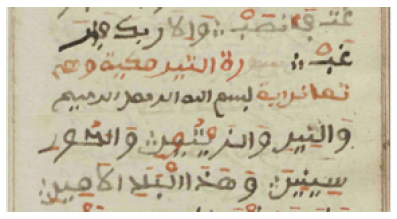 غت فانصب والى ربك فار
غب سورة التين مكية وهي
ثمان اية بسم الله الرحمن الرحيم
والتين والزيتون وطور
سينين وهذا البلد الامين